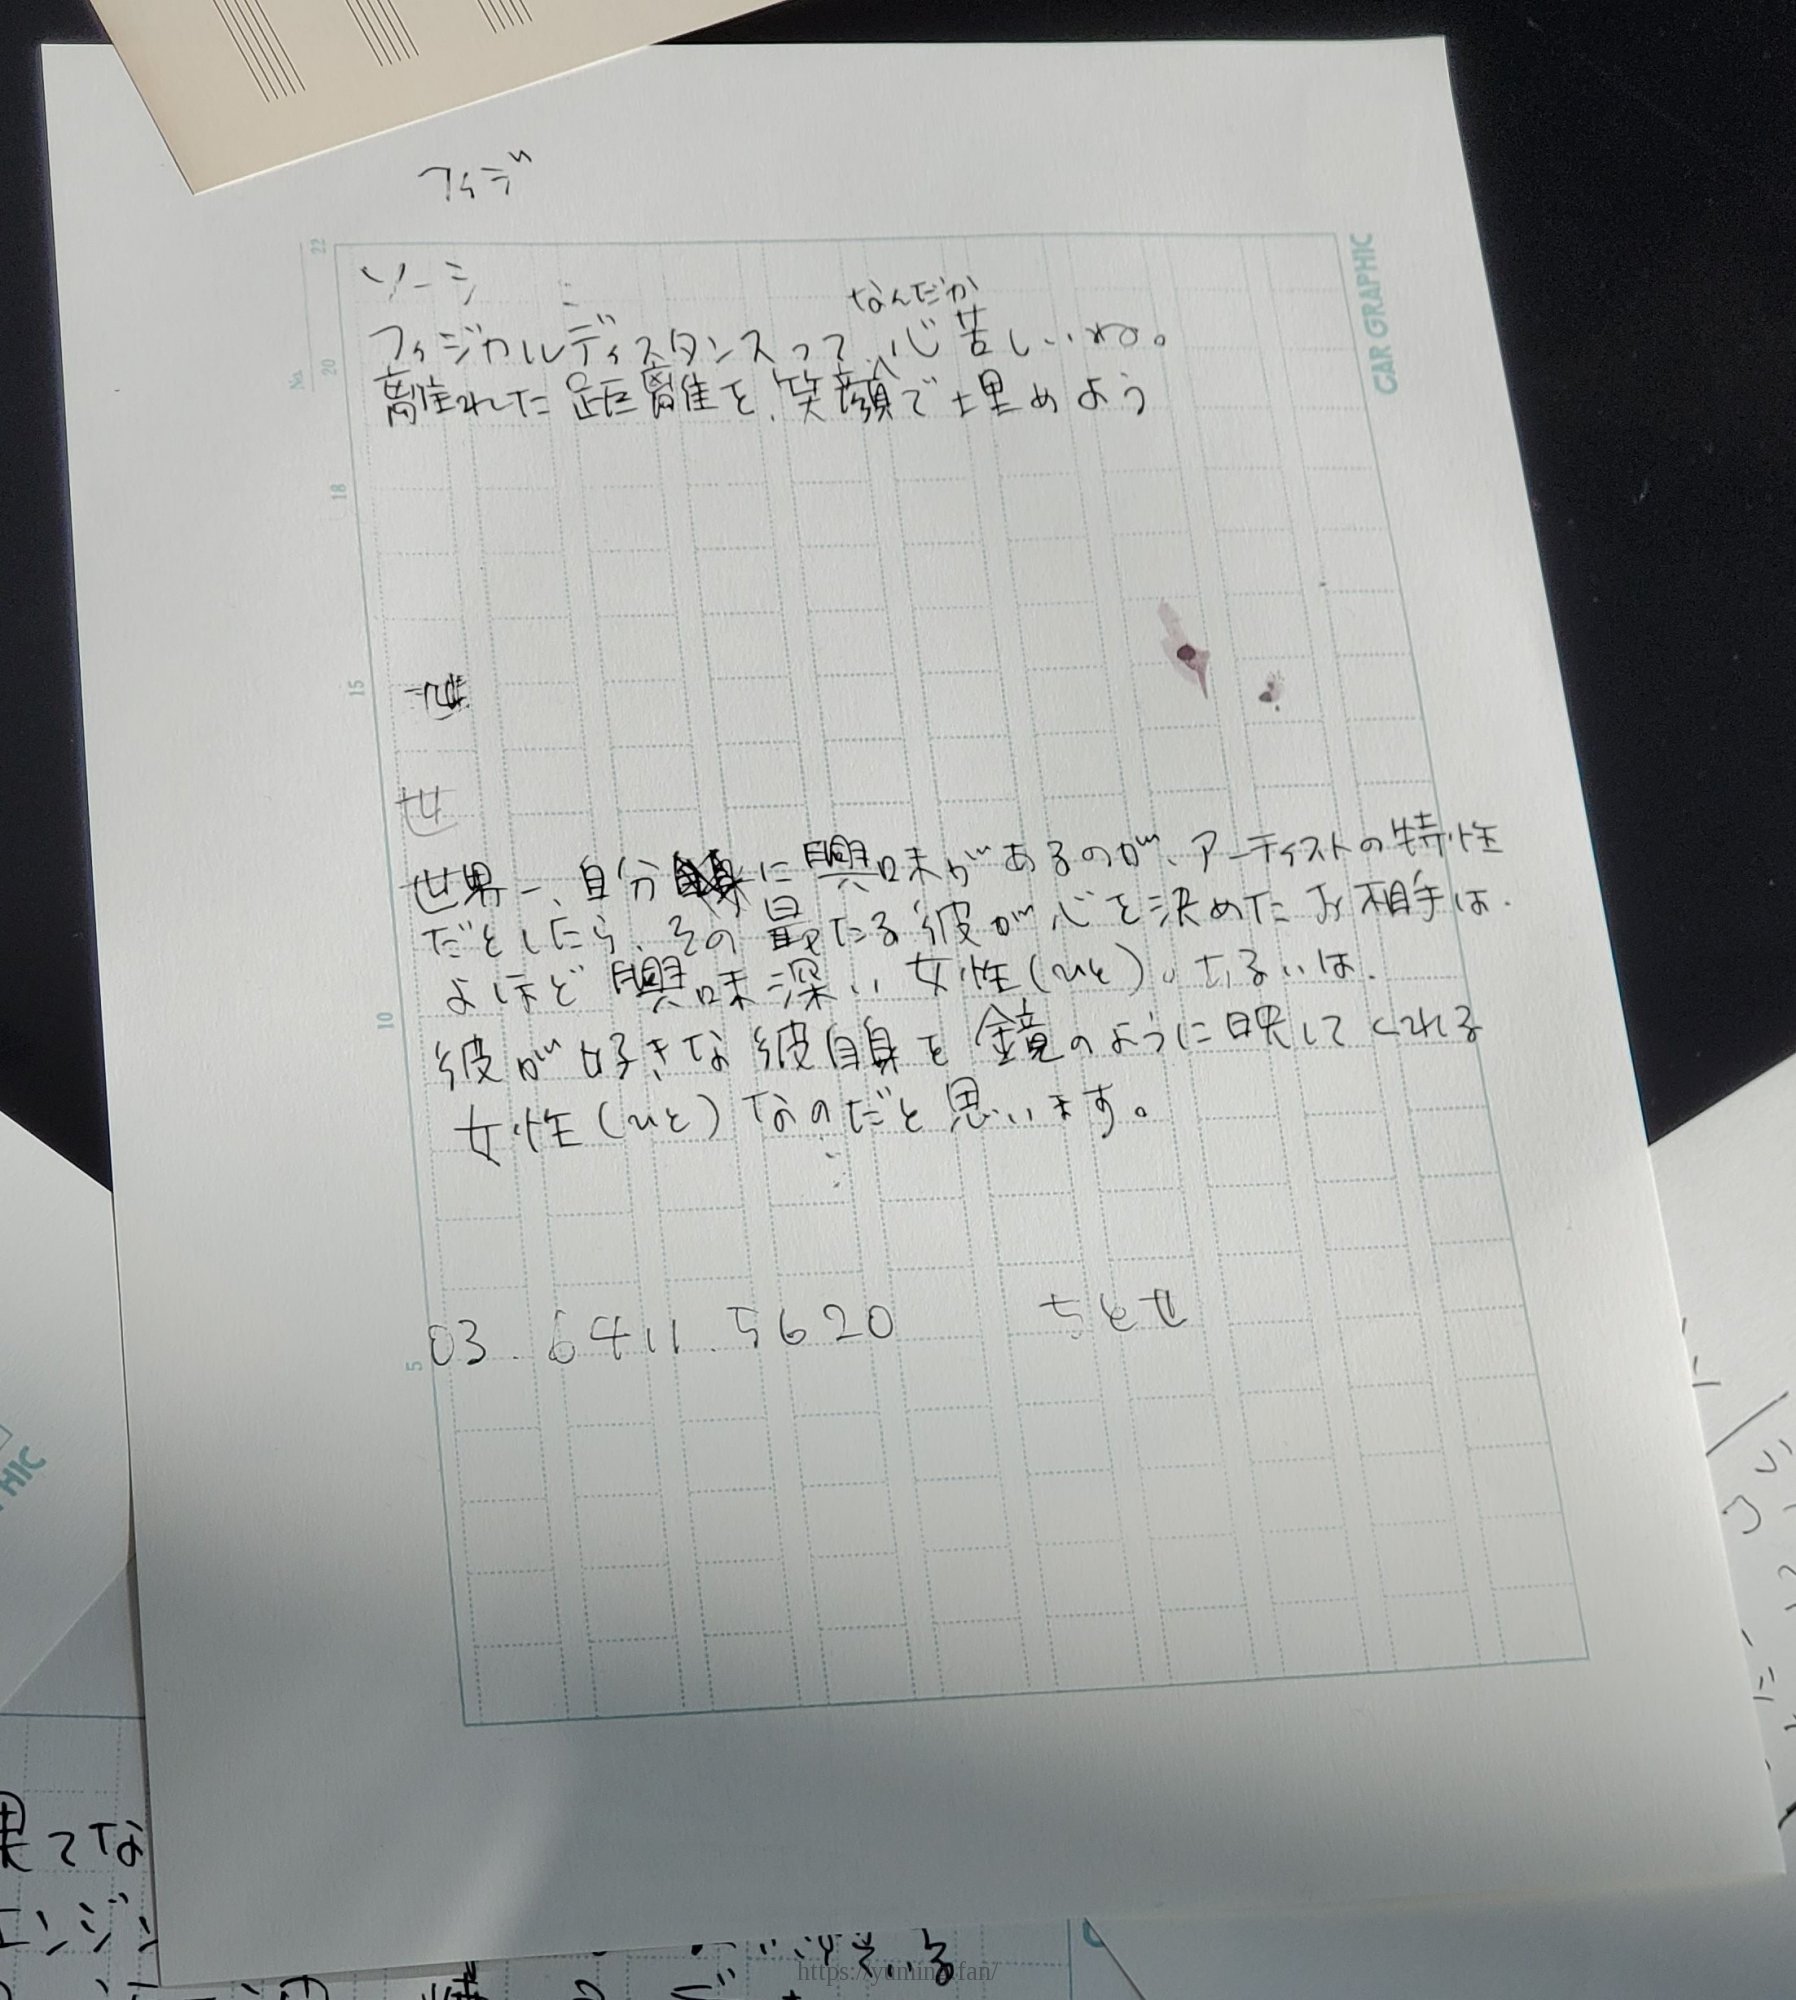 フィデ
ソーシ
なんだか
フィジカルディスタンスって、心苦しいね。
離れた距離を、笑顔で埋めよう
世
世界一、自分に興味があるのが、アーティストの特性
だとしたら、その最たる彼が心を決めたお相手は、
よほど興味深い女性(ひと)。あるいは、
彼が好きな彼自身を鏡のように映してくれる
女性(ひと)なのだと思います。
03.6411.5620 ちとせ
CAR GRAPHIC
No.
22
20
18
15
10
5
HIC
果てな
エンジン
https://yuming.fan/